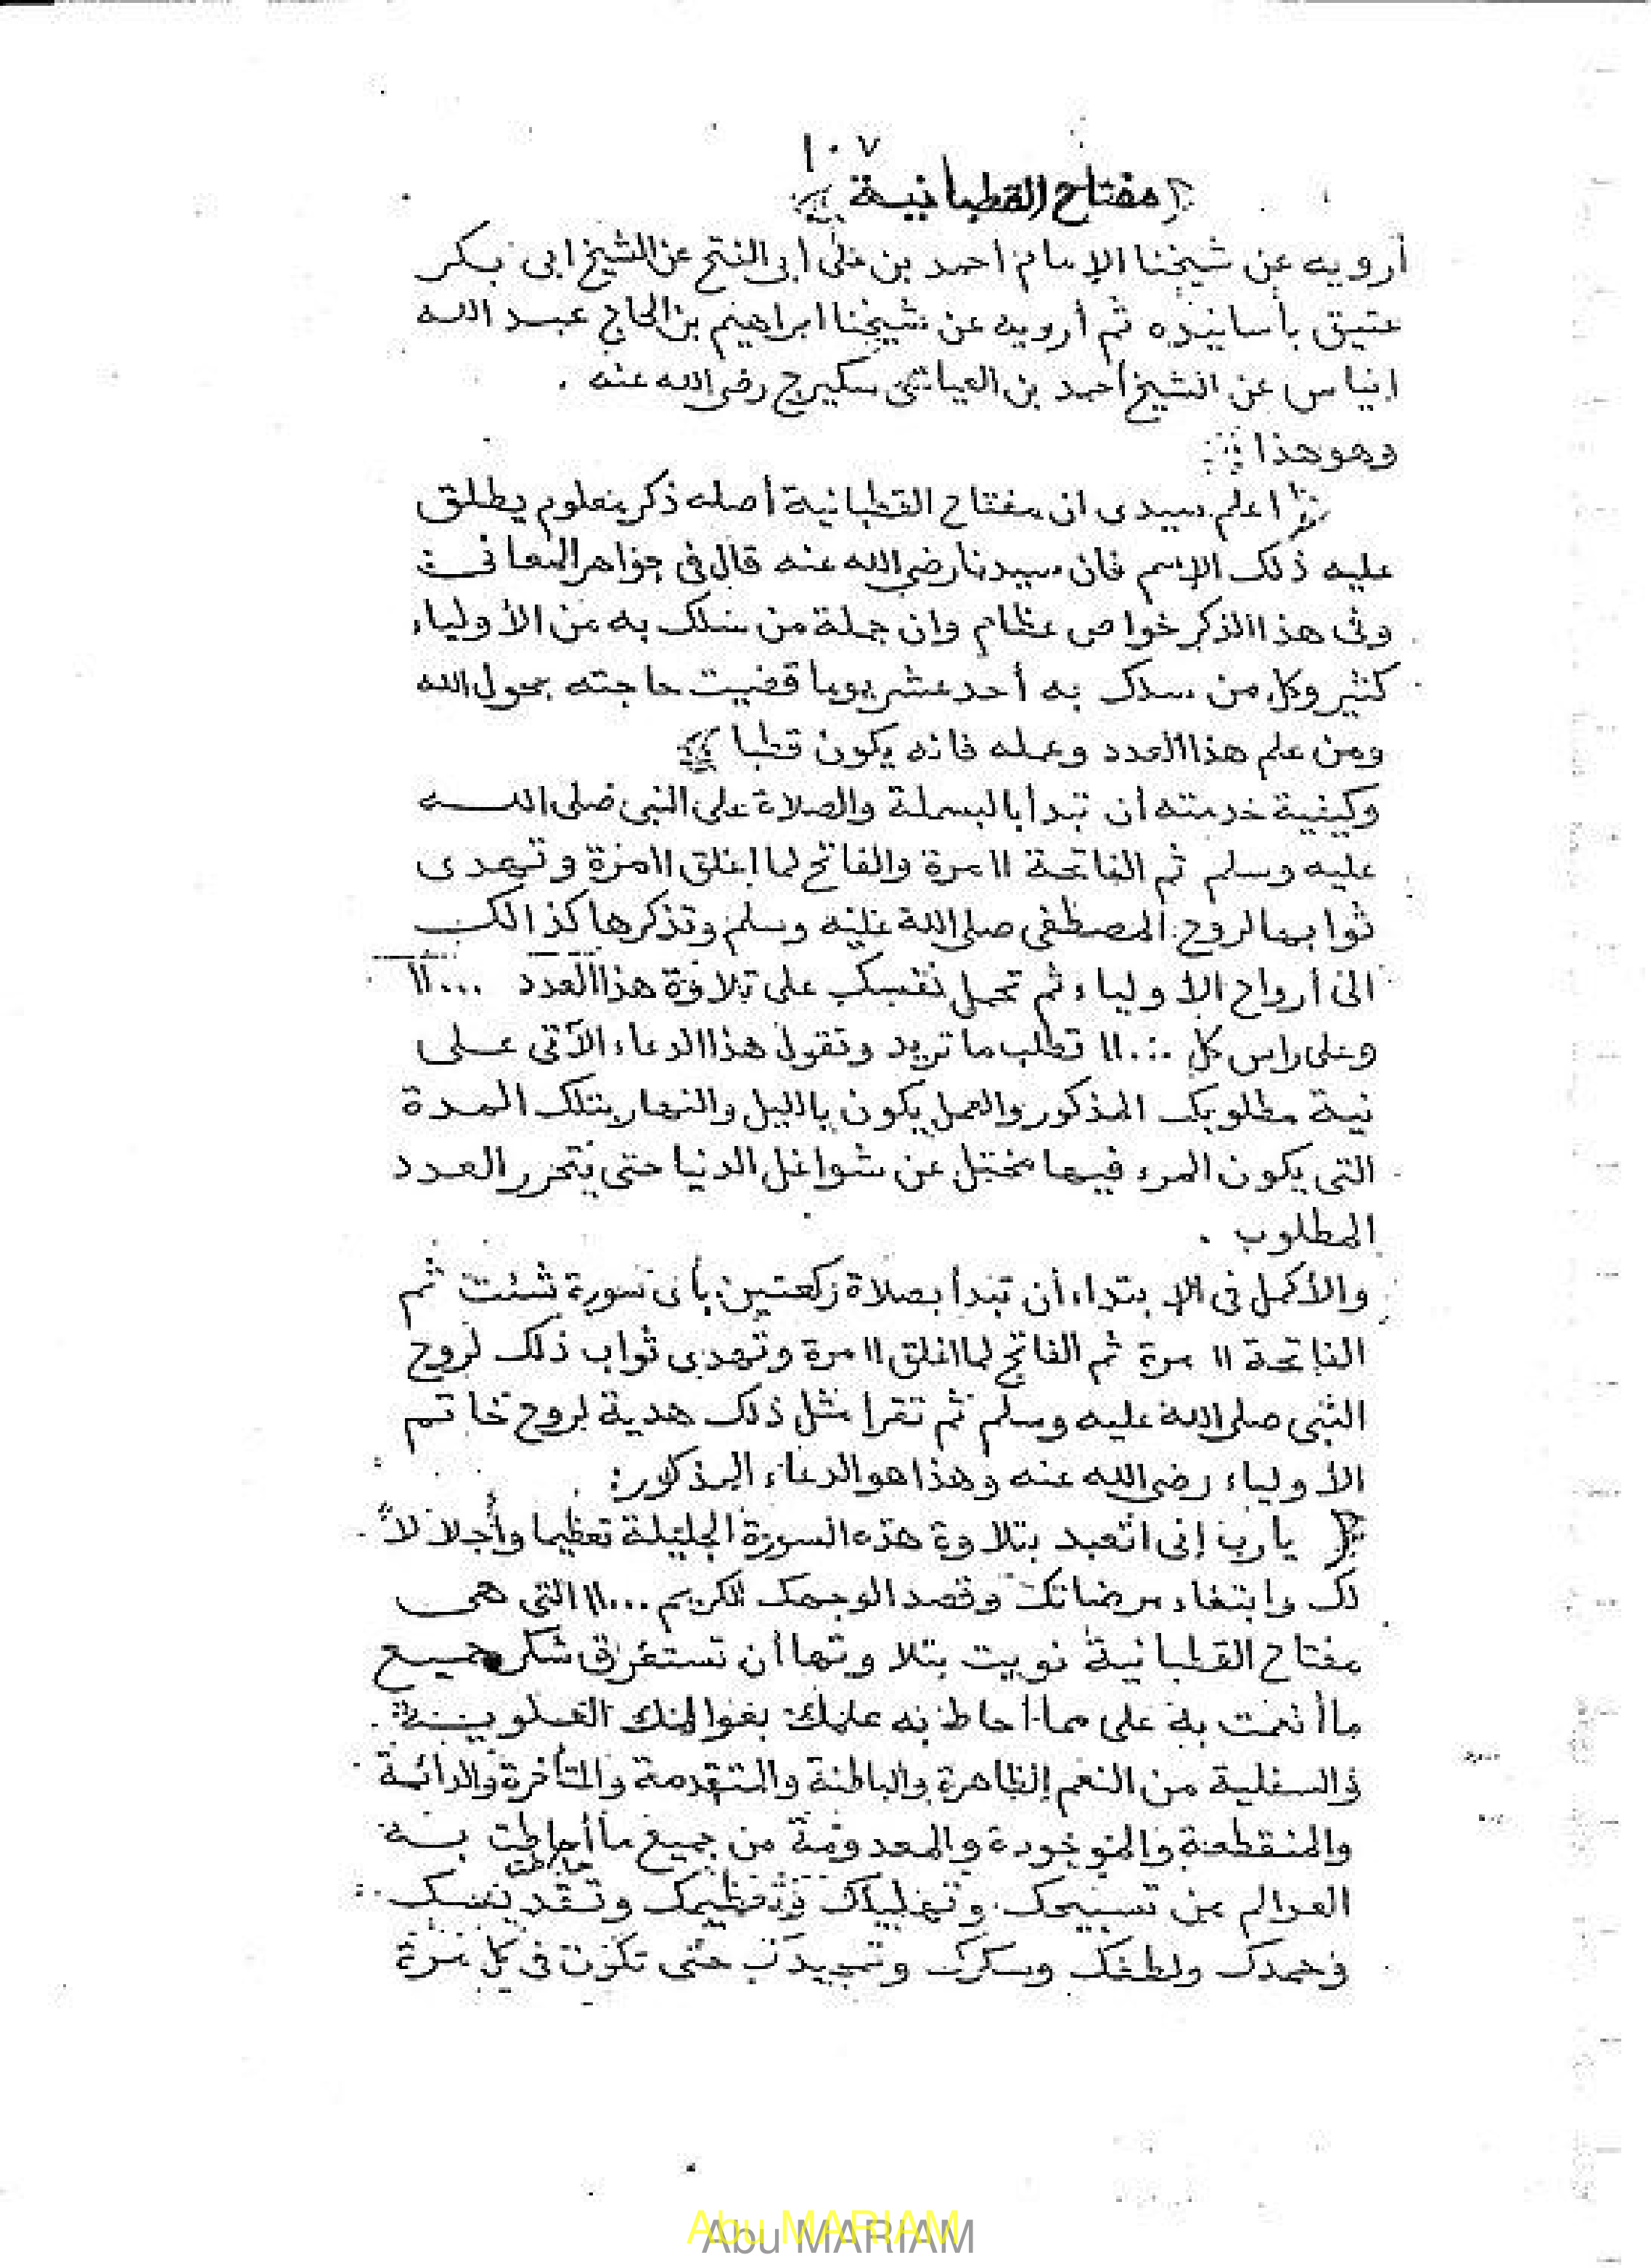 ١٠٧
﴿ مفتاح القطبانية ﴾
أرويه عن شيخنا الإمام احمد بن على ابى الفتح عن الشيخ ابى بكر
عتيق بأسانيده ثم أرويه عن شيخنا ابراهيم بن الحاج عبد الله
انياس عن الشيخ احمد بن العياشى سكيرج رضى الله عنه .
وهو هذا :
﴿ اعلم سيدى ان مفتاح القطبانية أصله ذكر معلوم يطلق
عليه ذلك الإسم فان سيدنا رضي الله عنه قال فى جواهر المعانى :
وفى هذا الذكر خواص عظام وان جملة من سلك به من الأولياء
كثير وكل من سلك به أحد عشر يوما قضيت حاجته بحول الله
ومن علم هذا العدد وعمله فانه يكون قطبا ﴾
وكيفية خدمته أن تبدأ بالبسملة والصلاة على النبى صلى الله
عليه وسلم ثم الفاتحة ١١ مرة والفاتح لما اغلق ١١ مرة وتهدى
ثوابهما لروح المصطفى صلى الله عليه وسلم وتذكرها كذالك
الى أرواح الاولياء ثم تحمل نفسك على تلاوة هذا العدد ١١٠٠٠
وعلى راس كل ١١٠٠ تطلب ما تريد وتقول هذا الدعاء الآتى على
نية مطلوبك المذكور والعمل يكون بالليل والنهار بتلك المدة
التى يكون المرء فيها مختل عن شواغل الدنيا حتى يتحرر العدد
المطلوب .
والأكمل فى الإبتداء أن تبدأ بصلاة ركعتين بأى سورة شئت ثم
الفاتحة ١١ مرة ثم الفاتح لما اغلق ١١ مرة وتهدى ثواب ذلك لروح
النبى صلى الله عليه وسلم ثم تقرا مثل ذلك هدية لروح خاتم
الأولياء رضي الله عنه وهذا هو الدعاء المذكور :
﴿ يا رب إنى اتعبد بتلاوة هذه السورة الجليلة تعظيما وأجلالاً
لك وابتغاء مرضاتك وقصدا لوجهك الكريم ١١٠٠٠ التى هى
مفتاح القطبانية نويت بتلاوتها أن تستغرق شكر جميع
ما أنعمت به على مما احاط به علمك بعوالمك العلوية
والسفلية من النعم الظاهرة والباطنة والمتقدمة والمتأخرة والدائمة
والمنقطعة والموجودة والمعدومة من جميع ما أحاطت به
العوالم من تسبيحك وتهليلك وتعظيمك وتقديسك
وحمدك ولطفك وسكرك وتمجيدك حتى تكون فى كل مرة
Abu MARIAM